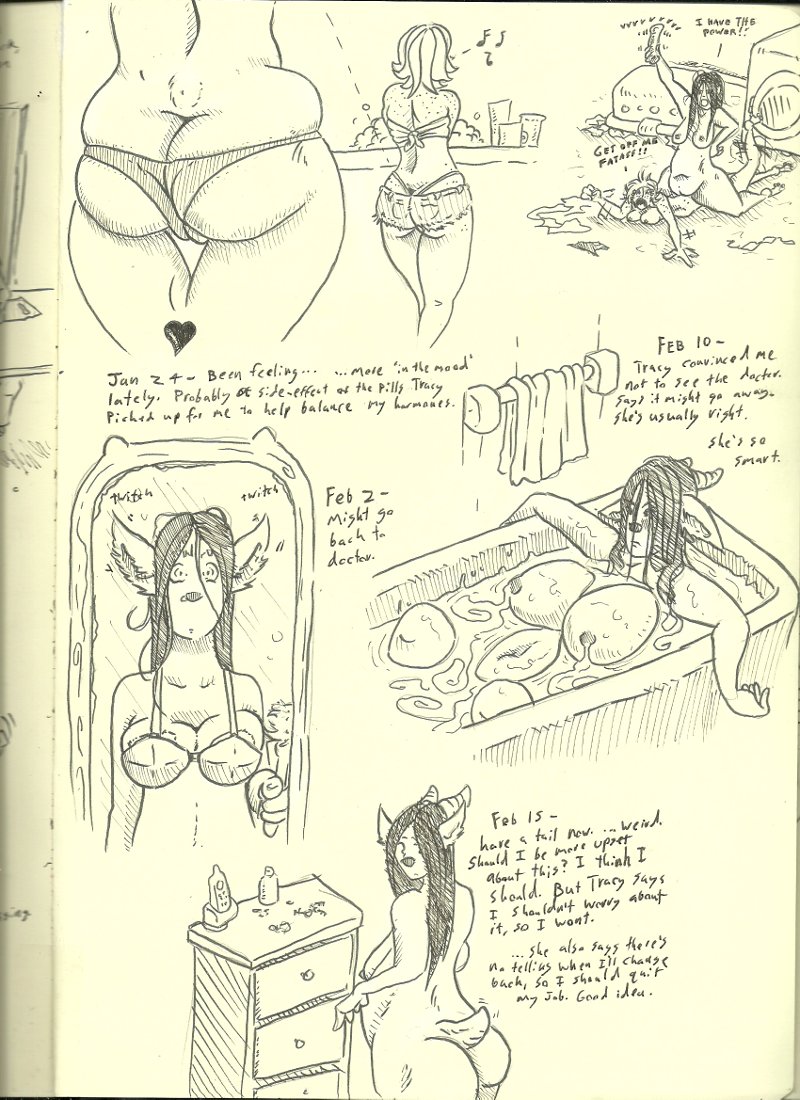 I HAVE THE
POWER!!
GET OFF ME
FATASS!!
Jan 24 - Been feeling... ...more "in the mood"
lately. Probably side-effect of the pills Tracy
Picked up for me to help balance my hormones.
FEB 10 -
Tracy convinced me
not to see the doctor.
Says it might go away.
She's usually right.
She's so
smart.
twitch
twitch
Feb 2 -
Might go
back to
doctor.
Feb 15 -
have a tail now. ...weird.
Should I be more upset
about this? I think I
should. But Tracy says
I shouldn't worry about
it, so I wont.
...she also says there's
no telling when I'll change
back, so I should quit
my job. Good idea.